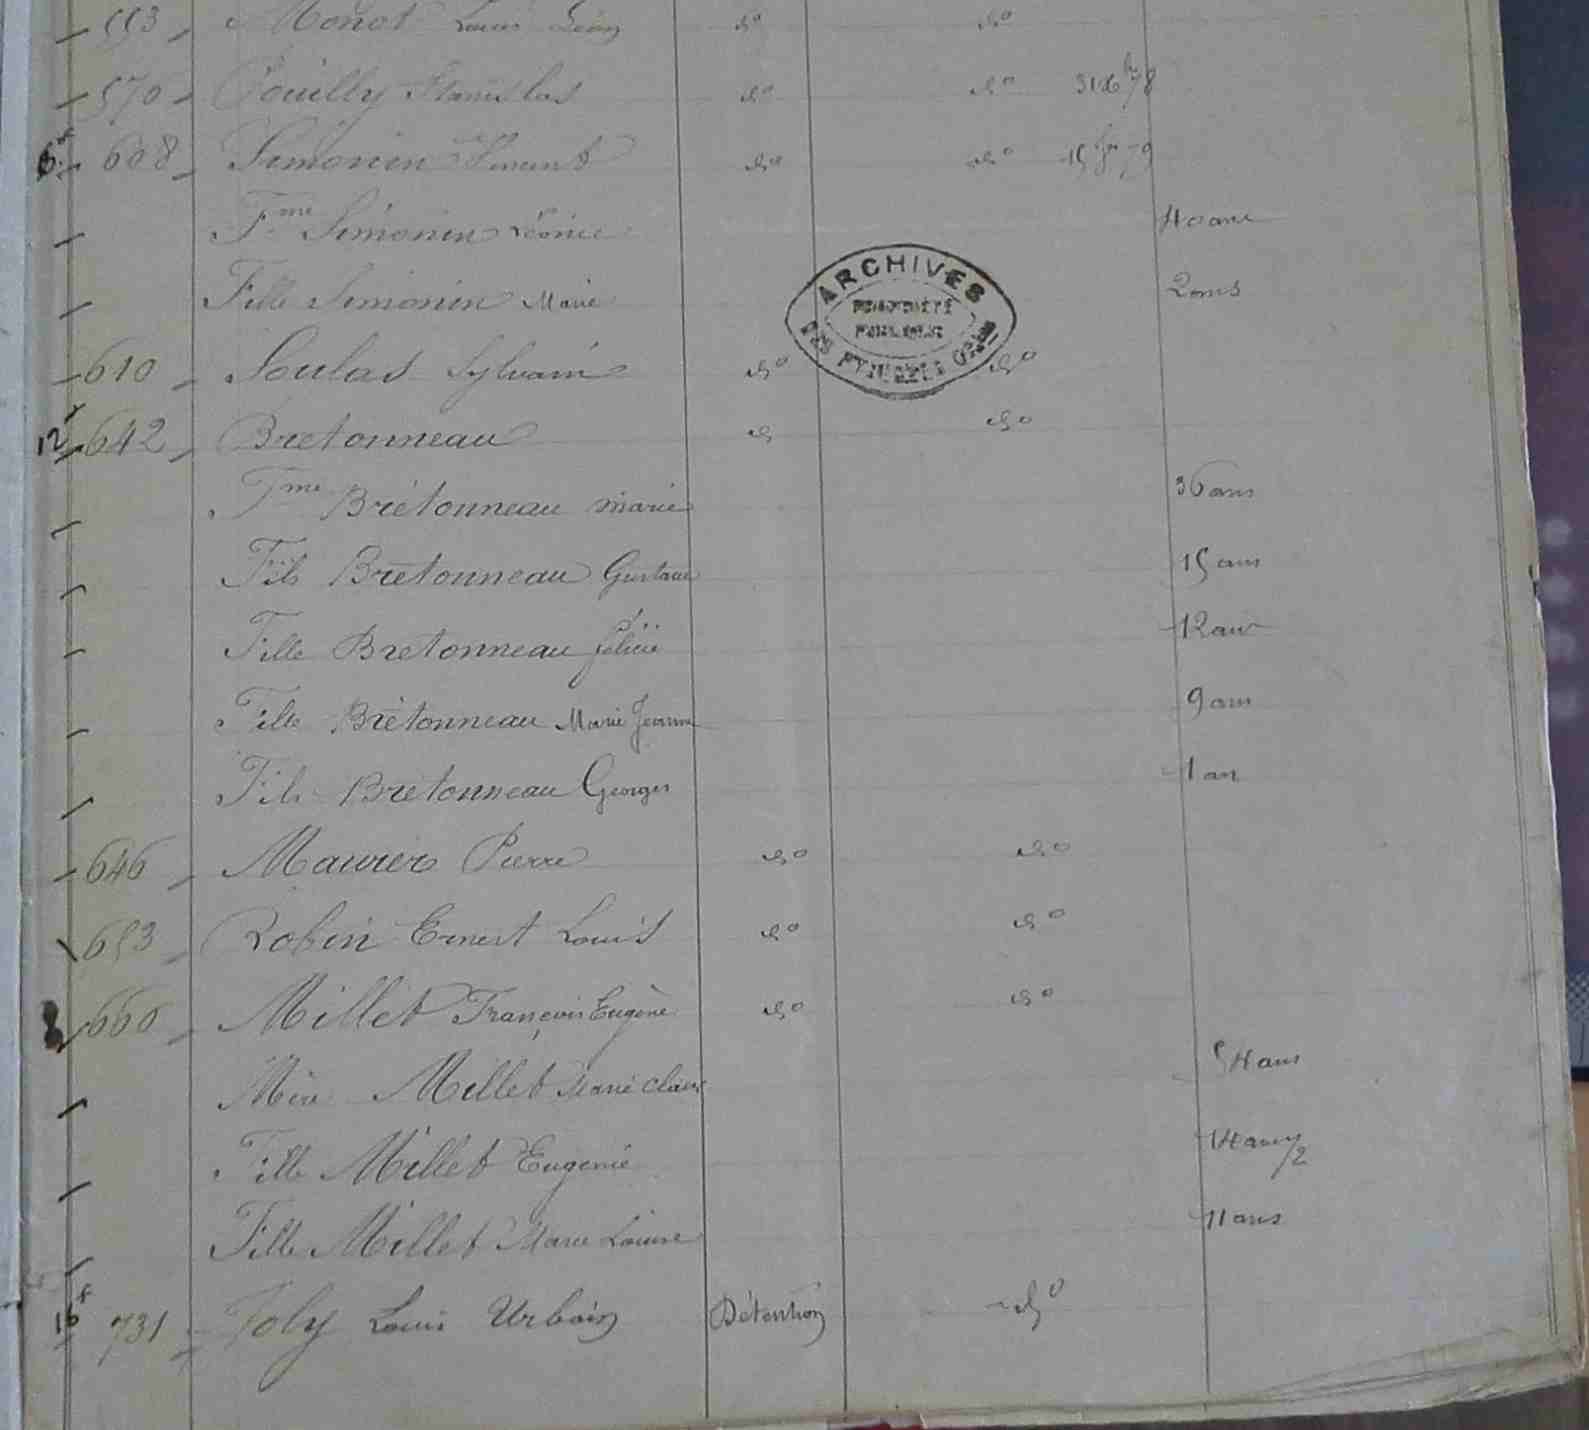 553 Monot Louis Léon do do
570 Pouilly Stanislas do do 31 Xbre 78
6. 608 Simonin Vincent do do 15 79
Fme Simonin Léonie 40 ans
Fille Simonin Marie 2 ans
ARCHIVES
PROPRIÉTÉ
PUBLIQUE
DES PYRÉNÉES Ores
610 Soulas Sylvain do do
12 642 Bretonneau d do
Fme Bretonneau Marie 36 ans
Fils Bretonneau Gustave 15 ans
Fille Bretonneau félicie 12 ans
Fille Bretonneau Marie Jeanne 9 ans
Fils Bretonneau Georges 1 an
646 Maurier Pierre do do
653 Robin Ernest Louis do do
660 Millet François Eugène do do
Mère Millet Marie Claire 54 ans
Fille Millet Eugenie 14 ans 1/2
Fille Millet Marie Louise 11 ans
16 731 Joly Louis Urbain Détention do